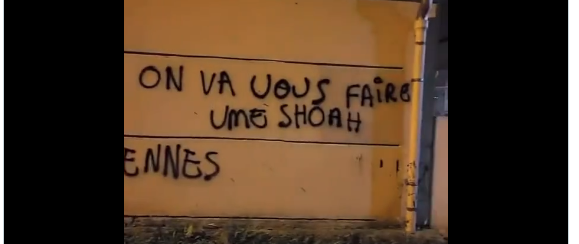 ON VA VOUS FAIRE
UME SHOAH
ENNES